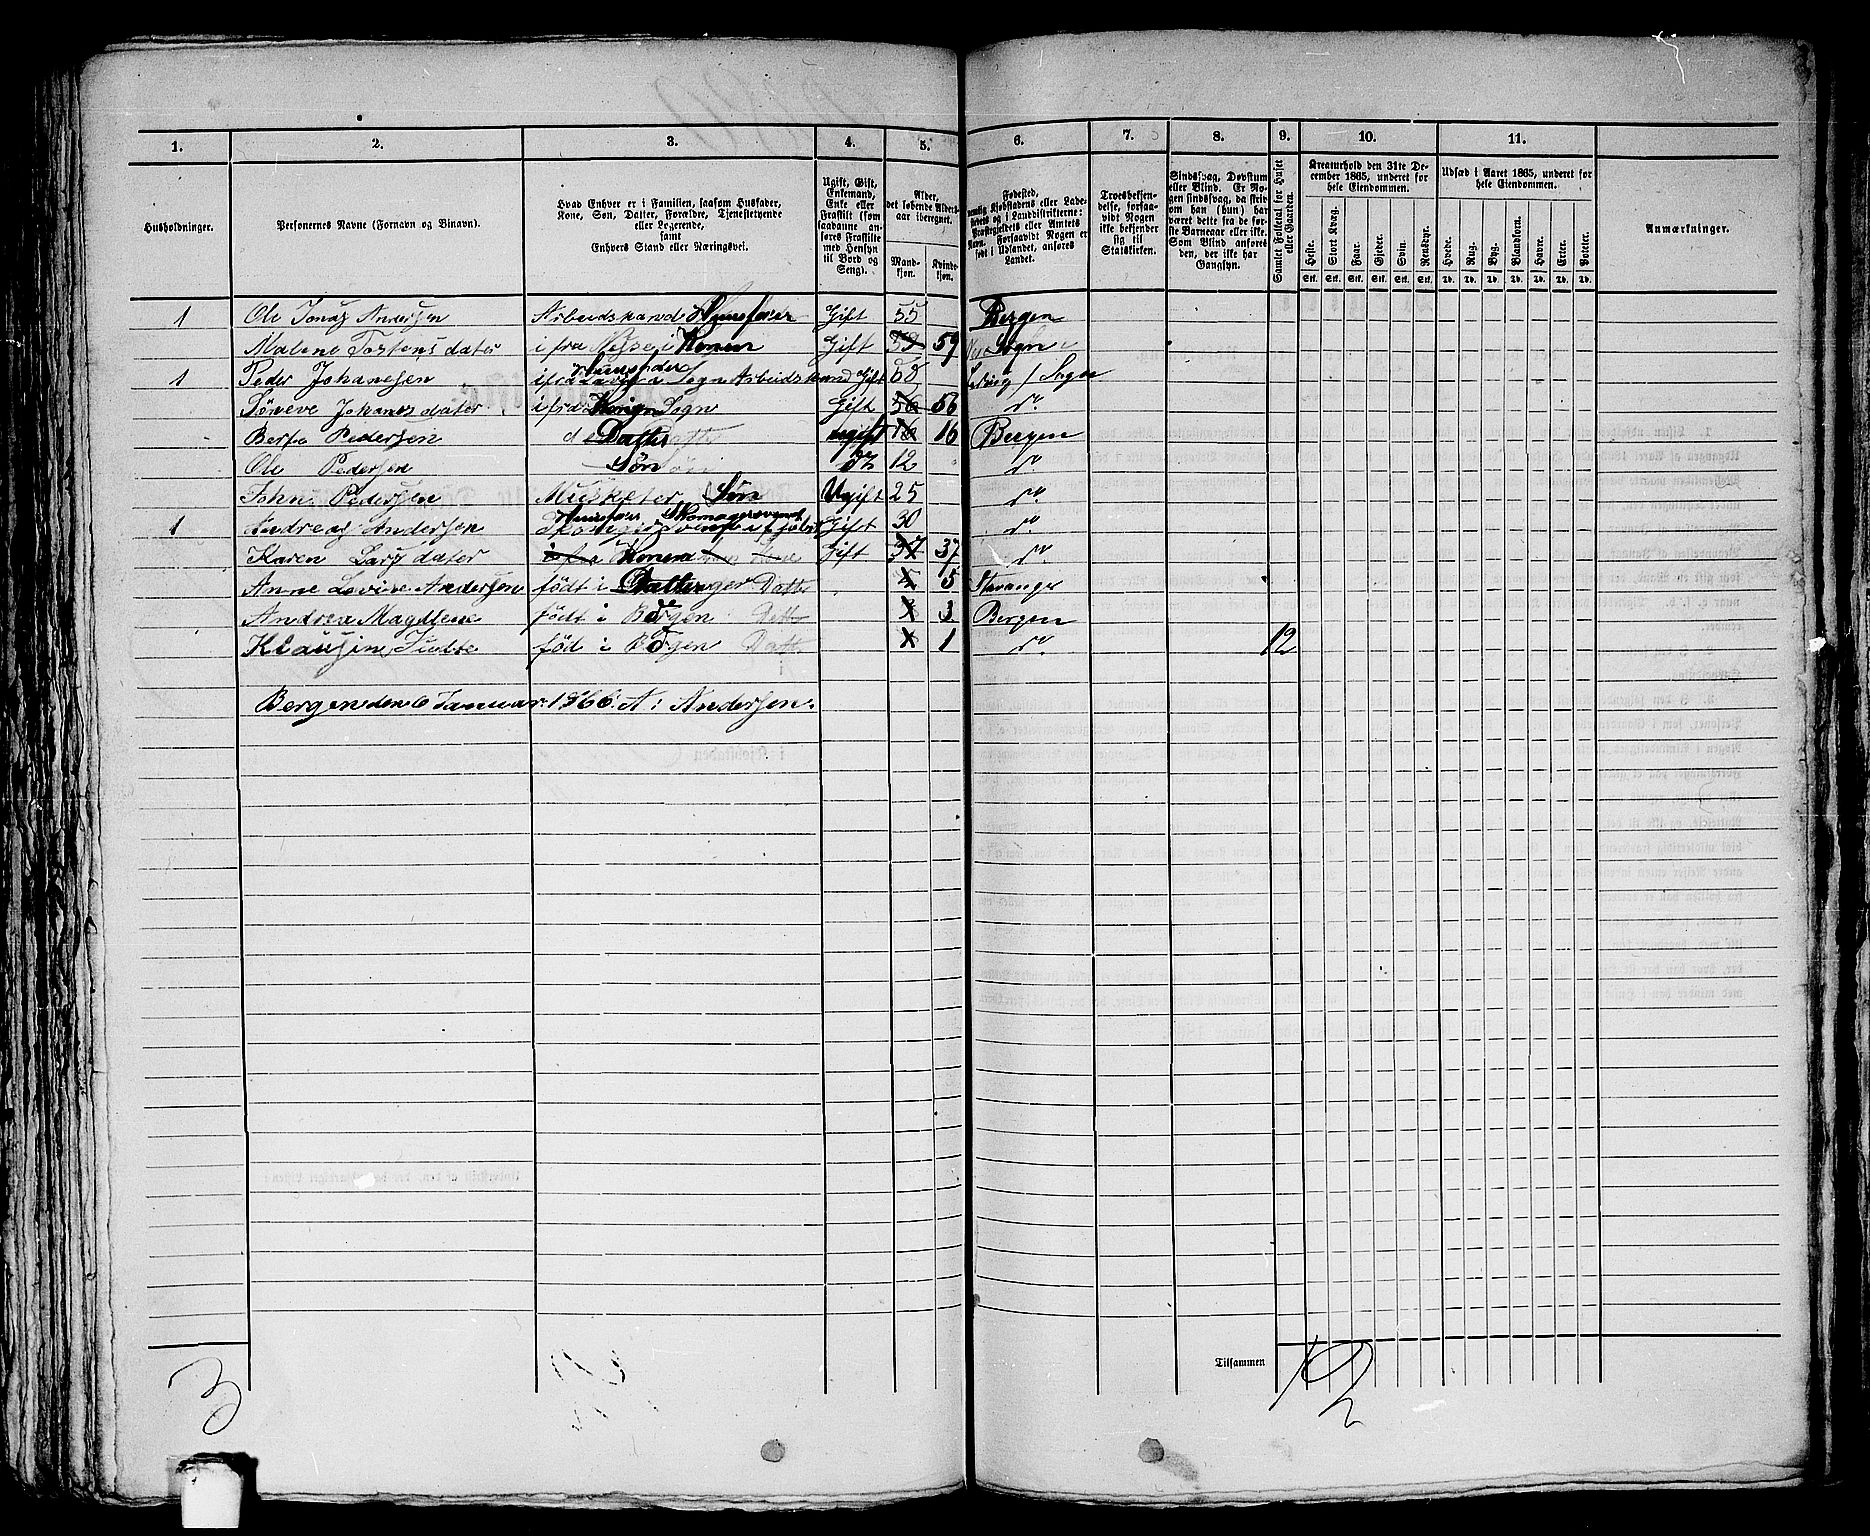 1. 2. 3. 4. 5. 6. 7. 8. 9. 10. 11.
Husholdninger.
Personernes Navne (Fornavn og Binavn).
Hvad Enhver er i Familien, saasom Husfader,
Kone, Søn, Datter, Forældre, Tjenestetyende
eller Logerende,
samt
Enhvers Stand eller Næringsvei.
Ugift, Gift,
Enkemand,
Enke eller
Fraskilt (som
saadanne an-
føres Fraskilte
med Hensyn
til Bord og
Seng).
Alder,
det løbende Alders-
aar iberegnet.
Mand-
kjøn.
Kvinde-
kjøn.
Fødested,
nemlig Kjøbstadens eller Lade-
stedets og i Landdistrikterne:
Præstegjeldets eller Amtets
Navn. Forsaavidt Nogen er
født i Udlandet, anføres
Landet.
Troesbekjen-
delse, forsaa-
vidt Nogen
ikke bekjender
sig til
Statskirken.
Sindssvag, Døvstum
eller Blind. Er No-
gen sindssvag, da skriv
om han (hun) har
været dette fra de før-
ste Barneaar eller ikke.
Som Blind anføres
den, der ikke har
Gangsyn.
Samlet Folketal for Huset
eller Gaarden.
Kreaturhold den 31te De-
cember 1865, underet for
hele Eiendommen.
Heste. Stort Kvæg. Faar. Gjeder. Svin. Rensdyr.
Stk. Stk. Stk. Stk. Stk. Stk.
Udsæd i Aaret 1865, underet for
hele Eiendommen.
Hvede. Rug. Byg. Blandkorn. Havre. Erter. Poteter.
Td. Td. Td. Td. Td. Td. Td.
Anmærkninger.
1 Ole Jonas Andersen Arbeidskarode Huusfader Gift 55 Bergen
Malene Tostensdater i fra Konen Gift 59 59 Sogn
1 Peder Johanesen Huusfader ifra Lavig i Sogn Arbeidskand Gift 68 Lavig / Sogn
Johansdater ifra Konen Sogn Gift 56 56 do
Berta Pedersen Datter ugift 16 16 Bergen
Ole Pedersen Søn do 12 do
John Pedersen Musketer Søn Ugift 25 do
1 Andreas Andersen Huusfader Skomagersvend Gift 30 do
Karen Larsdater i fra Konen Gift 37 37 do
Anne Andersen født i Datter 5 5 Stavanger
Andrea Magdlene født i Bergen Datter 3 3 Bergen
Klausine Julte fød i Bergen Datter 1 1 do 12
Bergen den 6 Januar 1866. A: Andersen.
Tilsammen 12
3